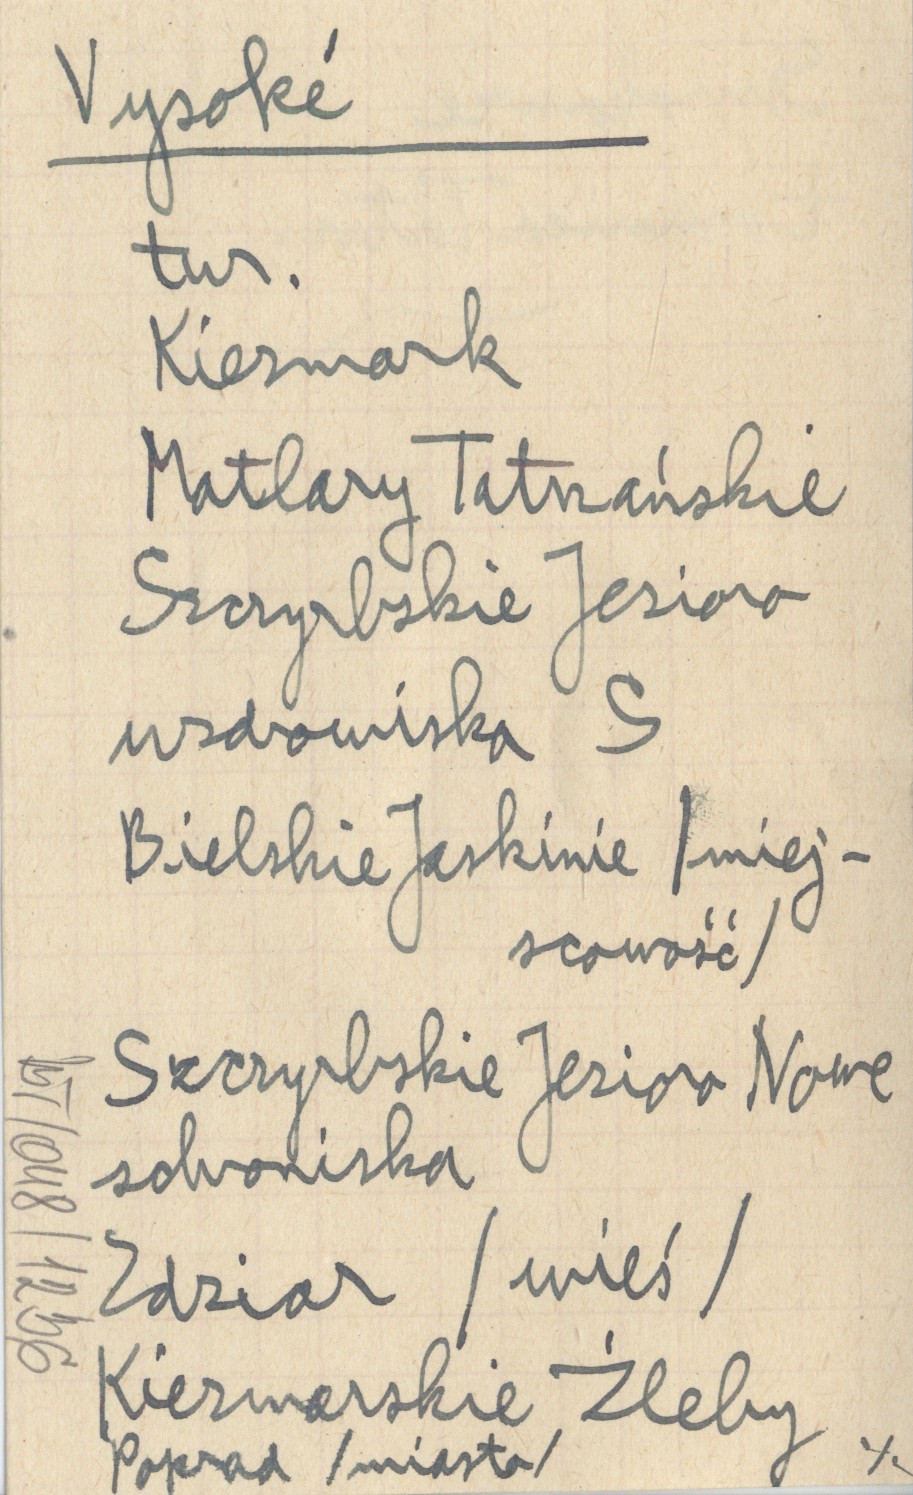 Vysoké
tur.
Kiezmark
Matlary Tatrzańskie
Szczyrbskie Jezioro
uzdrowiska S
Bielskie Jaskinie /miej-
scowość/
Szczyrbskie Jezioro Nowe
schroniska
Zdziar /wieś/
Kiezmarskie Żleby
Poprad /miasto/